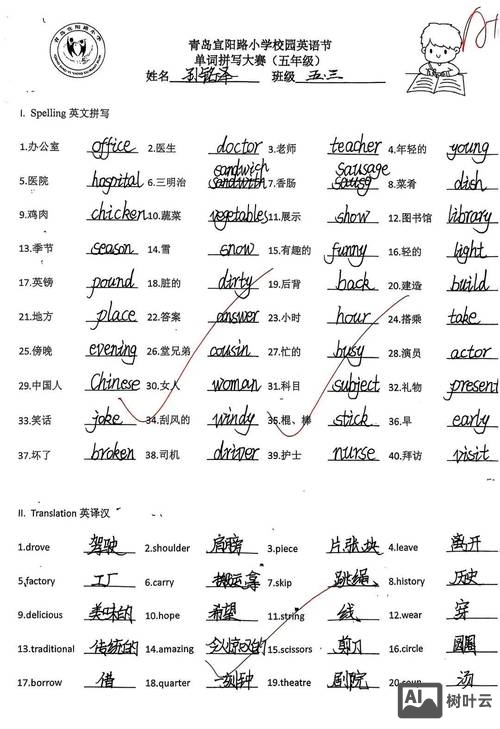 青岛宜阳路小学校园英语节
单词拼写大赛（五年级）
姓名 孙铭泽 班级 五.三
I. Spelling 英文拼写
1.办公室 office 2.医生 doctor 3.老师 teacher 4.年轻的 young
sandwich sausage
5.医院 hospital 6.三明治 7.香肠 8.菜肴 dish
9.鸡肉 chicken 10.蔬菜 vegetables 11.展示 show 12.图书馆 library
13.季节 season 14.雪 snow 15.有趣的 funny 16.轻的 light
17.英镑 pound 18.脏的 dirty 19.后背 back 20.建造 build
21.地方 place 22.答案 answer 23.小时 hour 24.搭乘 take
25.傍晚 evening 26.堂兄弟 cousin 27.忙的 busy 28.演员 actor
29.中国人 Chinese 30.女人 woman 31.科目 subject 32.礼物 present
33.笑话 joke 34.刮风的 windy 35.棍、棒 stick 36.早 early
37.坏了 broken 38.司机 driver 39.护士 nurse 40.拜访 visit
II. Translation 英译汉
1.drove 驾驶 2.shoulder 肩膀 3.piece 片.张.块 4.leave 离开
5.factory 工厂 6.carry 搬运.拿 7.skip 跳绳 8.history 历史
9.delicious 美味的 10.hope 希望 11.string 线 12.wear 穿
13.traditional 传统的 14.amazing 令人惊叹的 15.scissors 剪刀 16.circle 圆圈
17.borrow 借 18.quarter 一刻钟 19.theatre 剧院 20.soup 汤
AI 树叶云